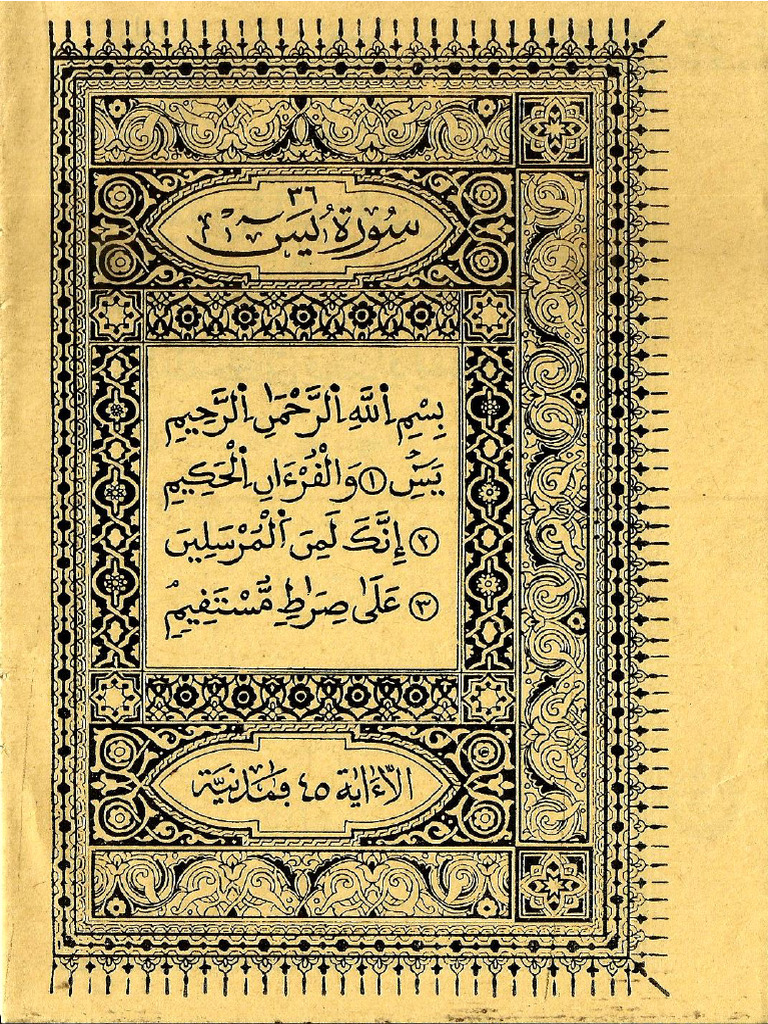 ٣٦
سُورَةُ يسٓ
بِسْمِ اِللَّهِ اِلرَّحْمَٰنِ اِلرَّحِيمِ
يَسِٓ ١ وَالْقُرْءَانِ اِلْحَكِيمِ
٢ إِنَّكَ لَمِنَ اَلْمُرْسَلِينَ
٣ عَلَىٰ صِرَٰطٍ مُّسْتَقِيمٍ
الاءَايَة ٤٥ فمدنيّة